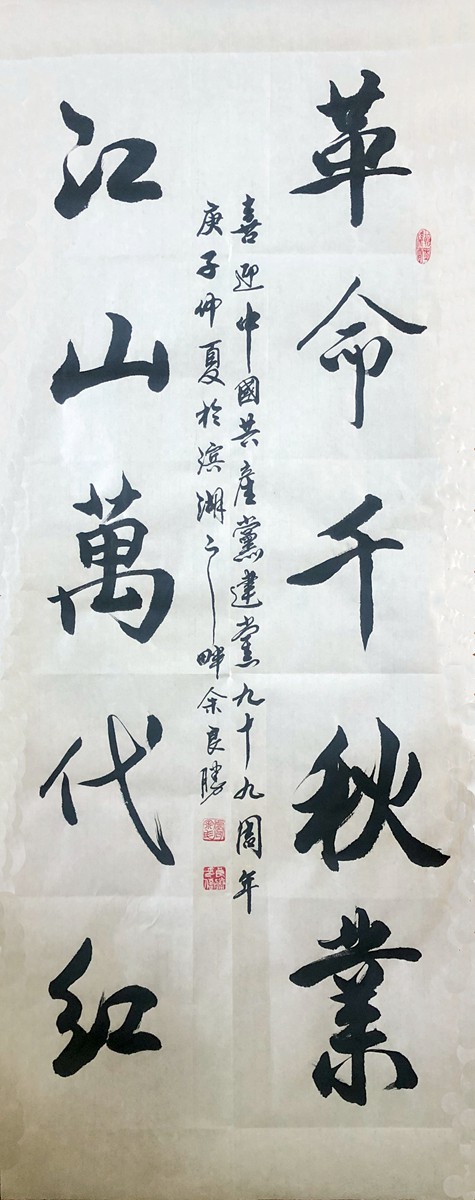 革命千秋業
喜迎中國共産黨建黨九十九周年
庚子仲夏於滨湖之畔余良勝
江山萬代红